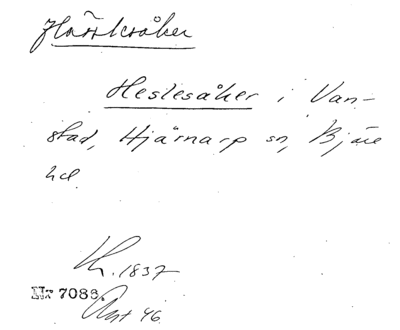 Hästsåker
Heslesåker i Van-
stad, Hjärnarp sn, Bjäre
hd
Lh. 1837
Nr 7086.
Avt 46